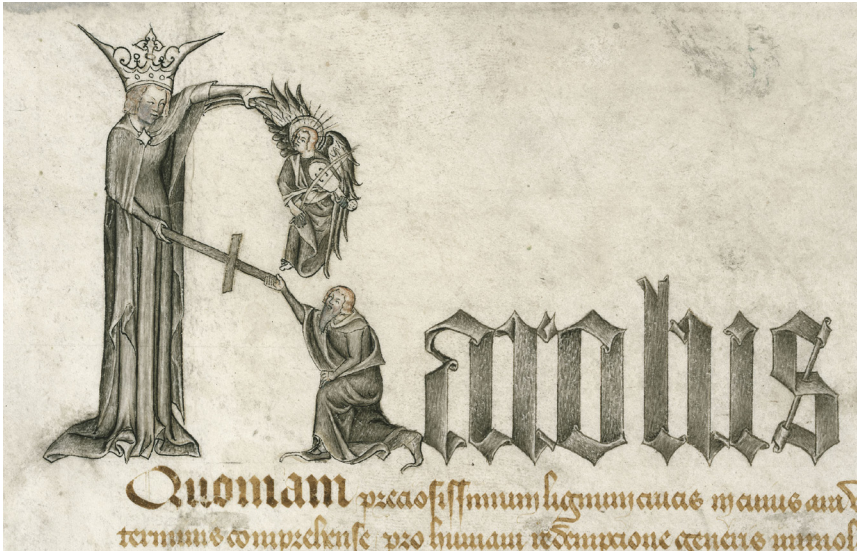 Karolus
Quoniam preciosissimum lignum crucis in cuius
terminus comprehense pro humani redempcione generis